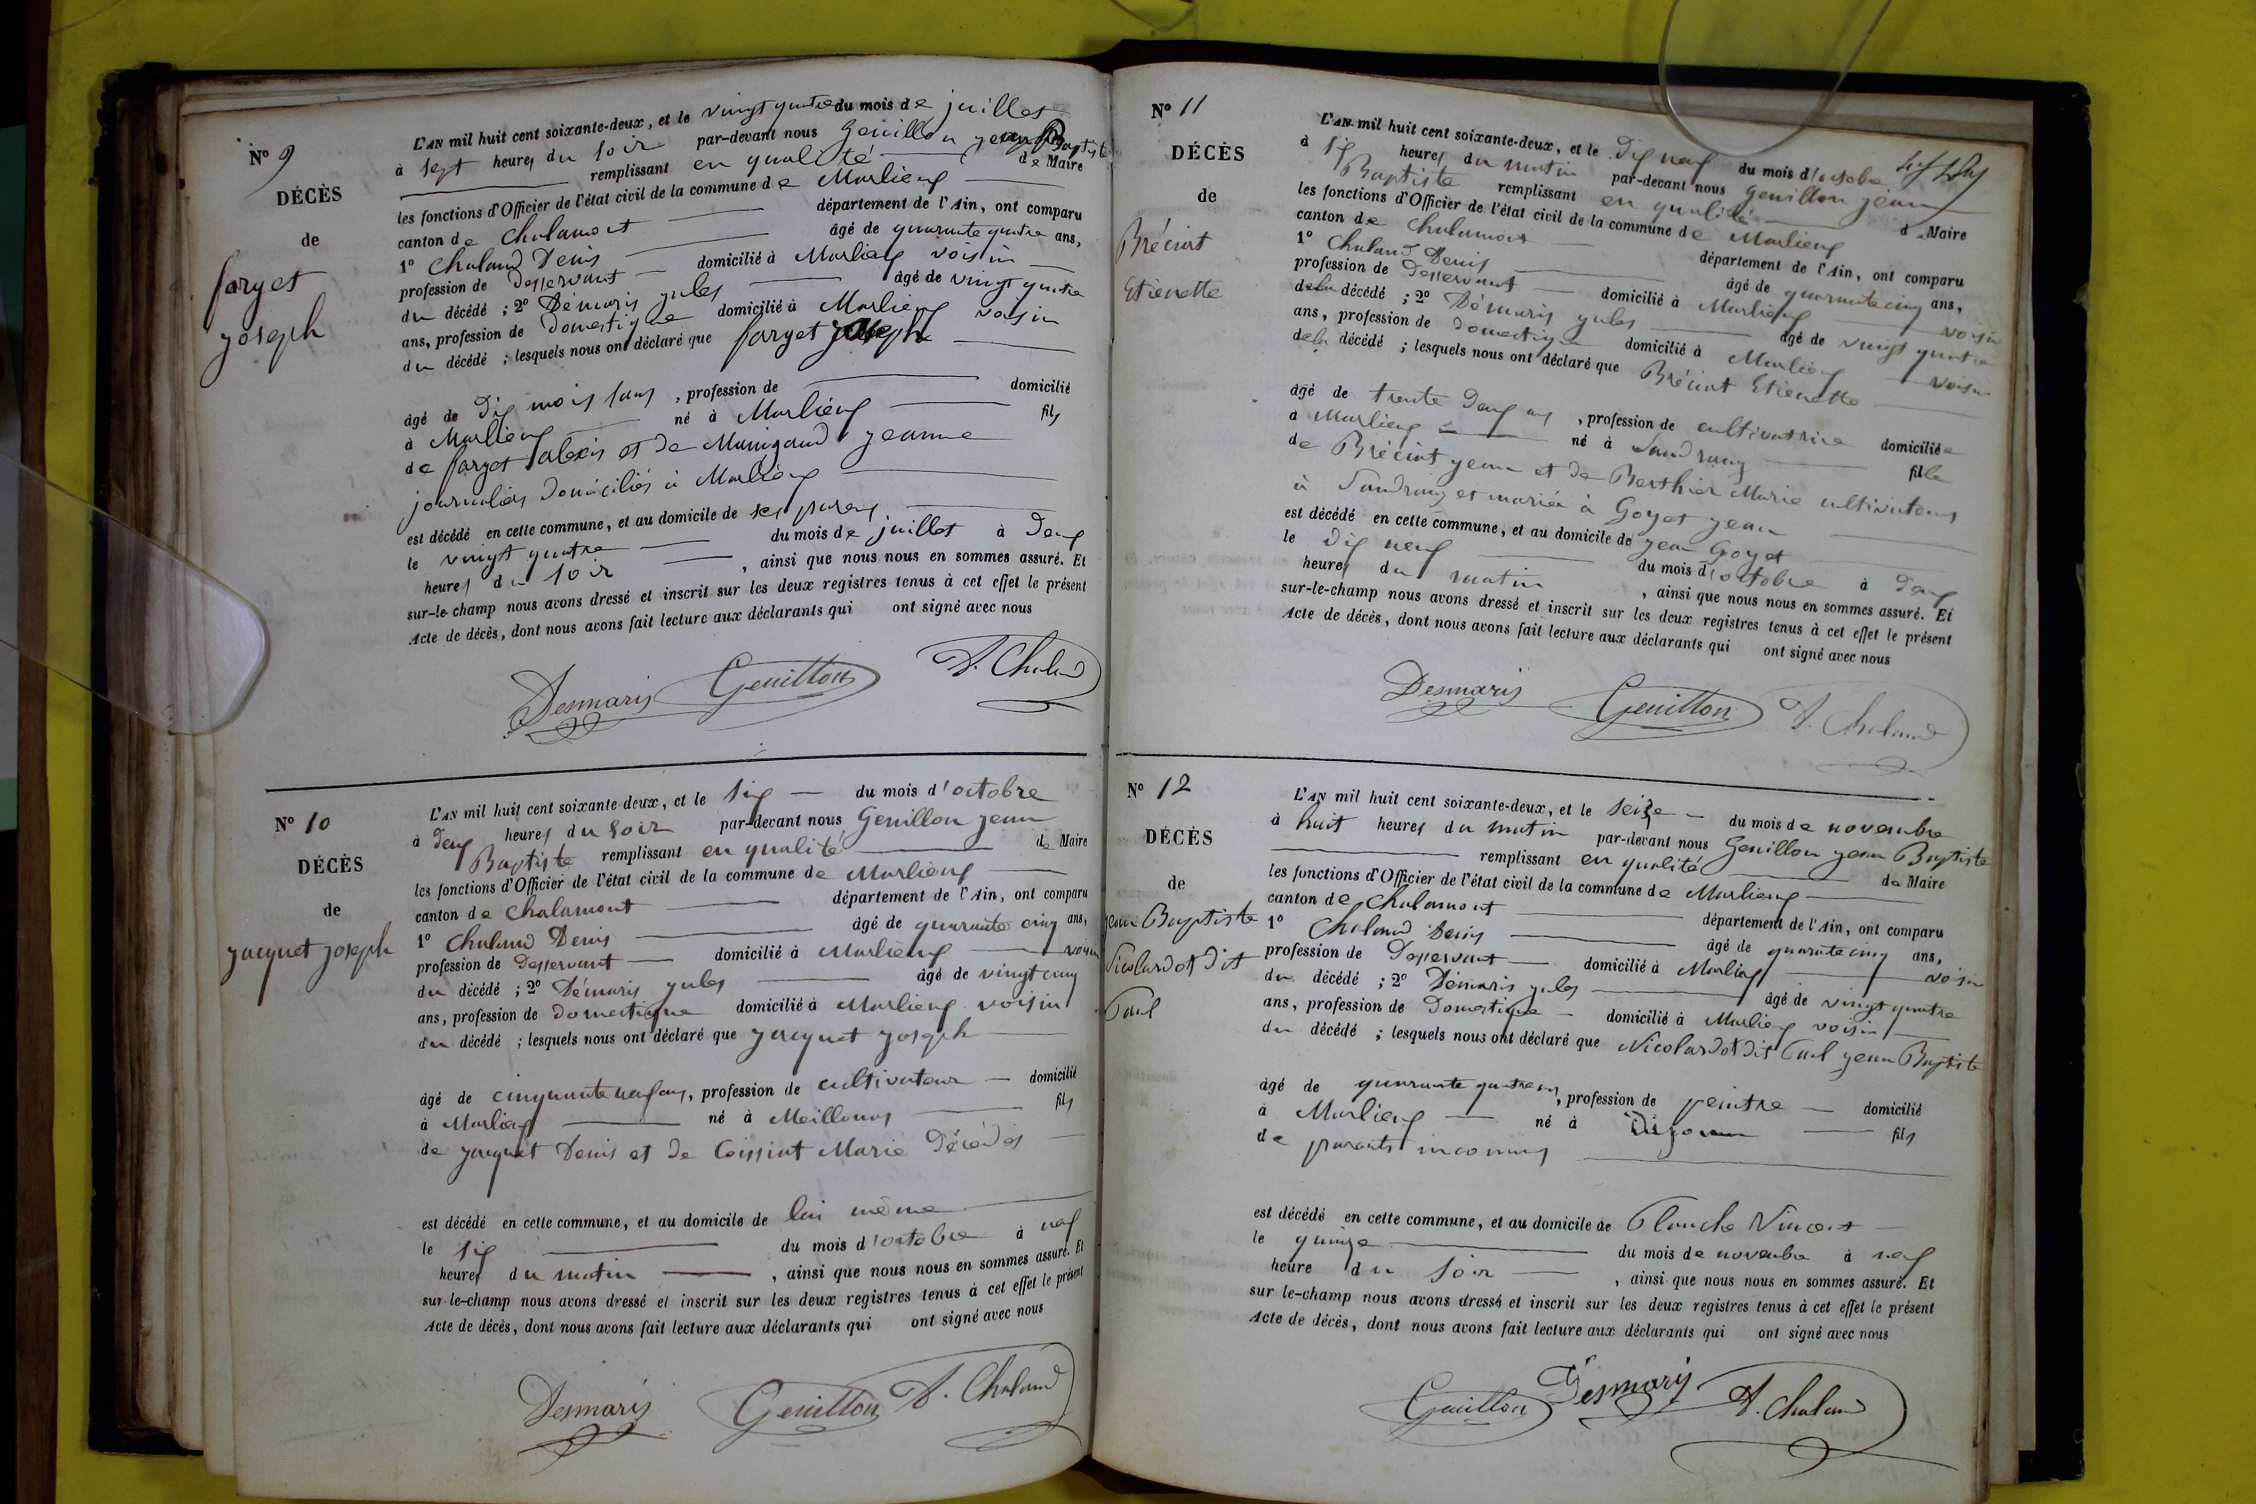 N° 9
DÉCÈS
de
farget
joseph
L'AN mil huit cent soixante-deux, et le vingt quatre du mois de juillet
à sept heures du soir par-devant nous Genillon jean Baptiste
remplissant en qualité de Maire
les fonctions d'Officier de l'état civil de la commune de Marlieux
canton de Chalamont département de l'Ain, ont comparu
1° Chaland Denis âgé de quarante quatre ans,
profession de Desservant domicilié à Marlieux voisin
du décédé ; 2° Démaris jules âgé de vingt quatre
ans, profession de Domestique domicilié à Marlieux voisin
du décédé ; lesquels nous ont déclaré que farget joseph
âgé de Dix mois sans , profession de domicilié
à Marlieux né à Marlieux fils
de farget alexis et de Manigand jeanne
journaliers Domiciliés à Marlieux
est décédé en cette commune, et au domicile de ses parens
le vingt quatre du mois de juillet à Deux
heures du soir , ainsi que nous nous en sommes assuré. Et
sur-le-champ nous avons dressé et inscrit sur les deux registres tenus à cet effet le présent
Acte de décès, dont nous avons fait lecture aux déclarants qui ont signé avec nous
Desmaris Genillon D. Chaland
N° 10
DÉCÈS
de
jacquet joseph
L'AN mil huit cent soixante-deux, et le six du mois d'octobre
à Deux heures du soir par-devant nous Genillon jean
Baptiste remplissant en qualité de Maire
les fonctions d'Officier de l'état civil de la commune de Marlieux
canton de Chalamont département de l'Ain, ont comparu
1° Chaland Denis âgé de quarante cinq ans,
profession de Desservant domicilié à Marlieux voisin
du décédé ; 2° Démaris jules âgé de vingt cinq
ans, profession de Domestique domicilié à Marlieux voisin
du décédé ; lesquels nous ont déclaré que jacquet joseph
âgé de cinquante neuf ans, profession de cultivateur domicilié
à Marlieux né à Meillonas fils
de jacquet Denis et de Coissiat Marie Décédés
est décédé en cette commune, et au domicile de lui même
le six du mois d'octobre à neuf
heures du matin , ainsi que nous nous en sommes assuré. Et
sur-le-champ nous avons dressé et inscrit sur les deux registres tenus à cet effet le présent
Acte de décès, dont nous avons fait lecture aux déclarants qui ont signé avec nous
Desmaris Genillon D. Chaland
N° 11
DÉCÈS
de
Bréciat
Etienette
L'AN mil huit cent soixante-deux, et le Dix neuf du mois d'octobre
à six heures du matin par-devant nous Genillon jean
Baptiste remplissant en qualité de Maire
les fonctions d'Officier de l'état civil de la commune de Marlieux
canton de Chalamont département de l'Ain, ont comparu
1° Chaland Denis âgé de quarante cinq ans,
profession de Desservant domicilié à Marlieux voisin
de la décédé ; 2° Démaris jules âgé de vingt quatre
ans, profession de Domestique domicilié à Marlieux voisin
de la décédé ; lesquels nous ont déclaré que Bréciat Etienette
âgé de trente Deux ans , profession de cultivatrice domiciliée
à Marlieux né à Sandrans fille
de Bréciat jean et de Berthier Marie cultivateurs
à Sandrans et mariée à Goyet jean
est décédé en cette commune, et au domicile de jean Goyet
le Dix neuf du mois d'octobre à Deux
heures du matin , ainsi que nous nous en sommes assuré. Et
sur-le-champ nous avons dressé et inscrit sur les deux registres tenus à cet effet le présent
Acte de décès, dont nous avons fait lecture aux déclarants qui ont signé avec nous
Desmaris Genillon D. Chaland
N° 12
DÉCÈS
de
jean Baptiste
Nicolardot dit
Paul
L'AN mil huit cent soixante-deux, et le seize du mois de novembre
à huit heures du matin par-devant nous Genillon jean Baptiste
remplissant en qualité de Maire
les fonctions d'Officier de l'état civil de la commune de Marlieux
canton de Chalamont département de l'Ain, ont comparu
1° Chaland Denis âgé de quarante cinq ans,
profession de Desservant domicilié à Marlieux voisin
du décédé ; 2° Démaris jules âgé de vingt quatre
ans, profession de Domestique domicilié à Marlieux voisin
du décédé ; lesquels nous ont déclaré que Nicolardot dit Paul jean Baptiste
âgé de quarante quatre ans, profession de peintre domicilié
à Marlieux né à fils
de parents inconnus
est décédé en cette commune, et au domicile de Planche Vincent
le quinze du mois de novembre à neuf
heure du soir , ainsi que nous nous en sommes assuré. Et
sur le-champ nous avons dressé et inscrit sur les deux registres tenus à cet effet le présent
Acte de décès, dont nous avons fait lecture aux déclarants qui ont signé avec nous
Genillon Desmaris D. Chaland